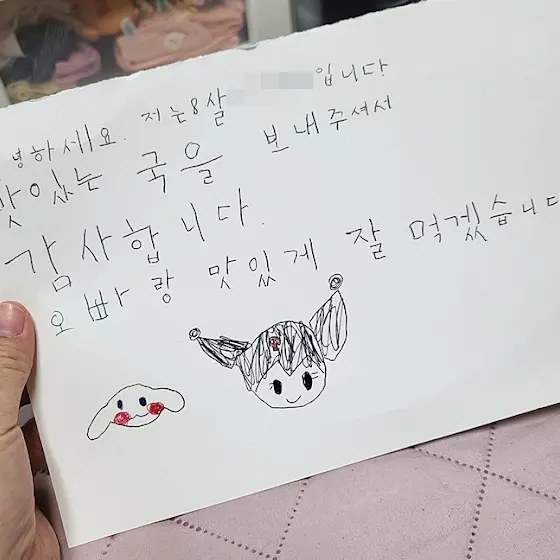 녕하세요. 저는 8살 입니다
맛있는 국을 보내주셔서
감사합니다.
오빠랑 맛있게 잘 먹겠습니다